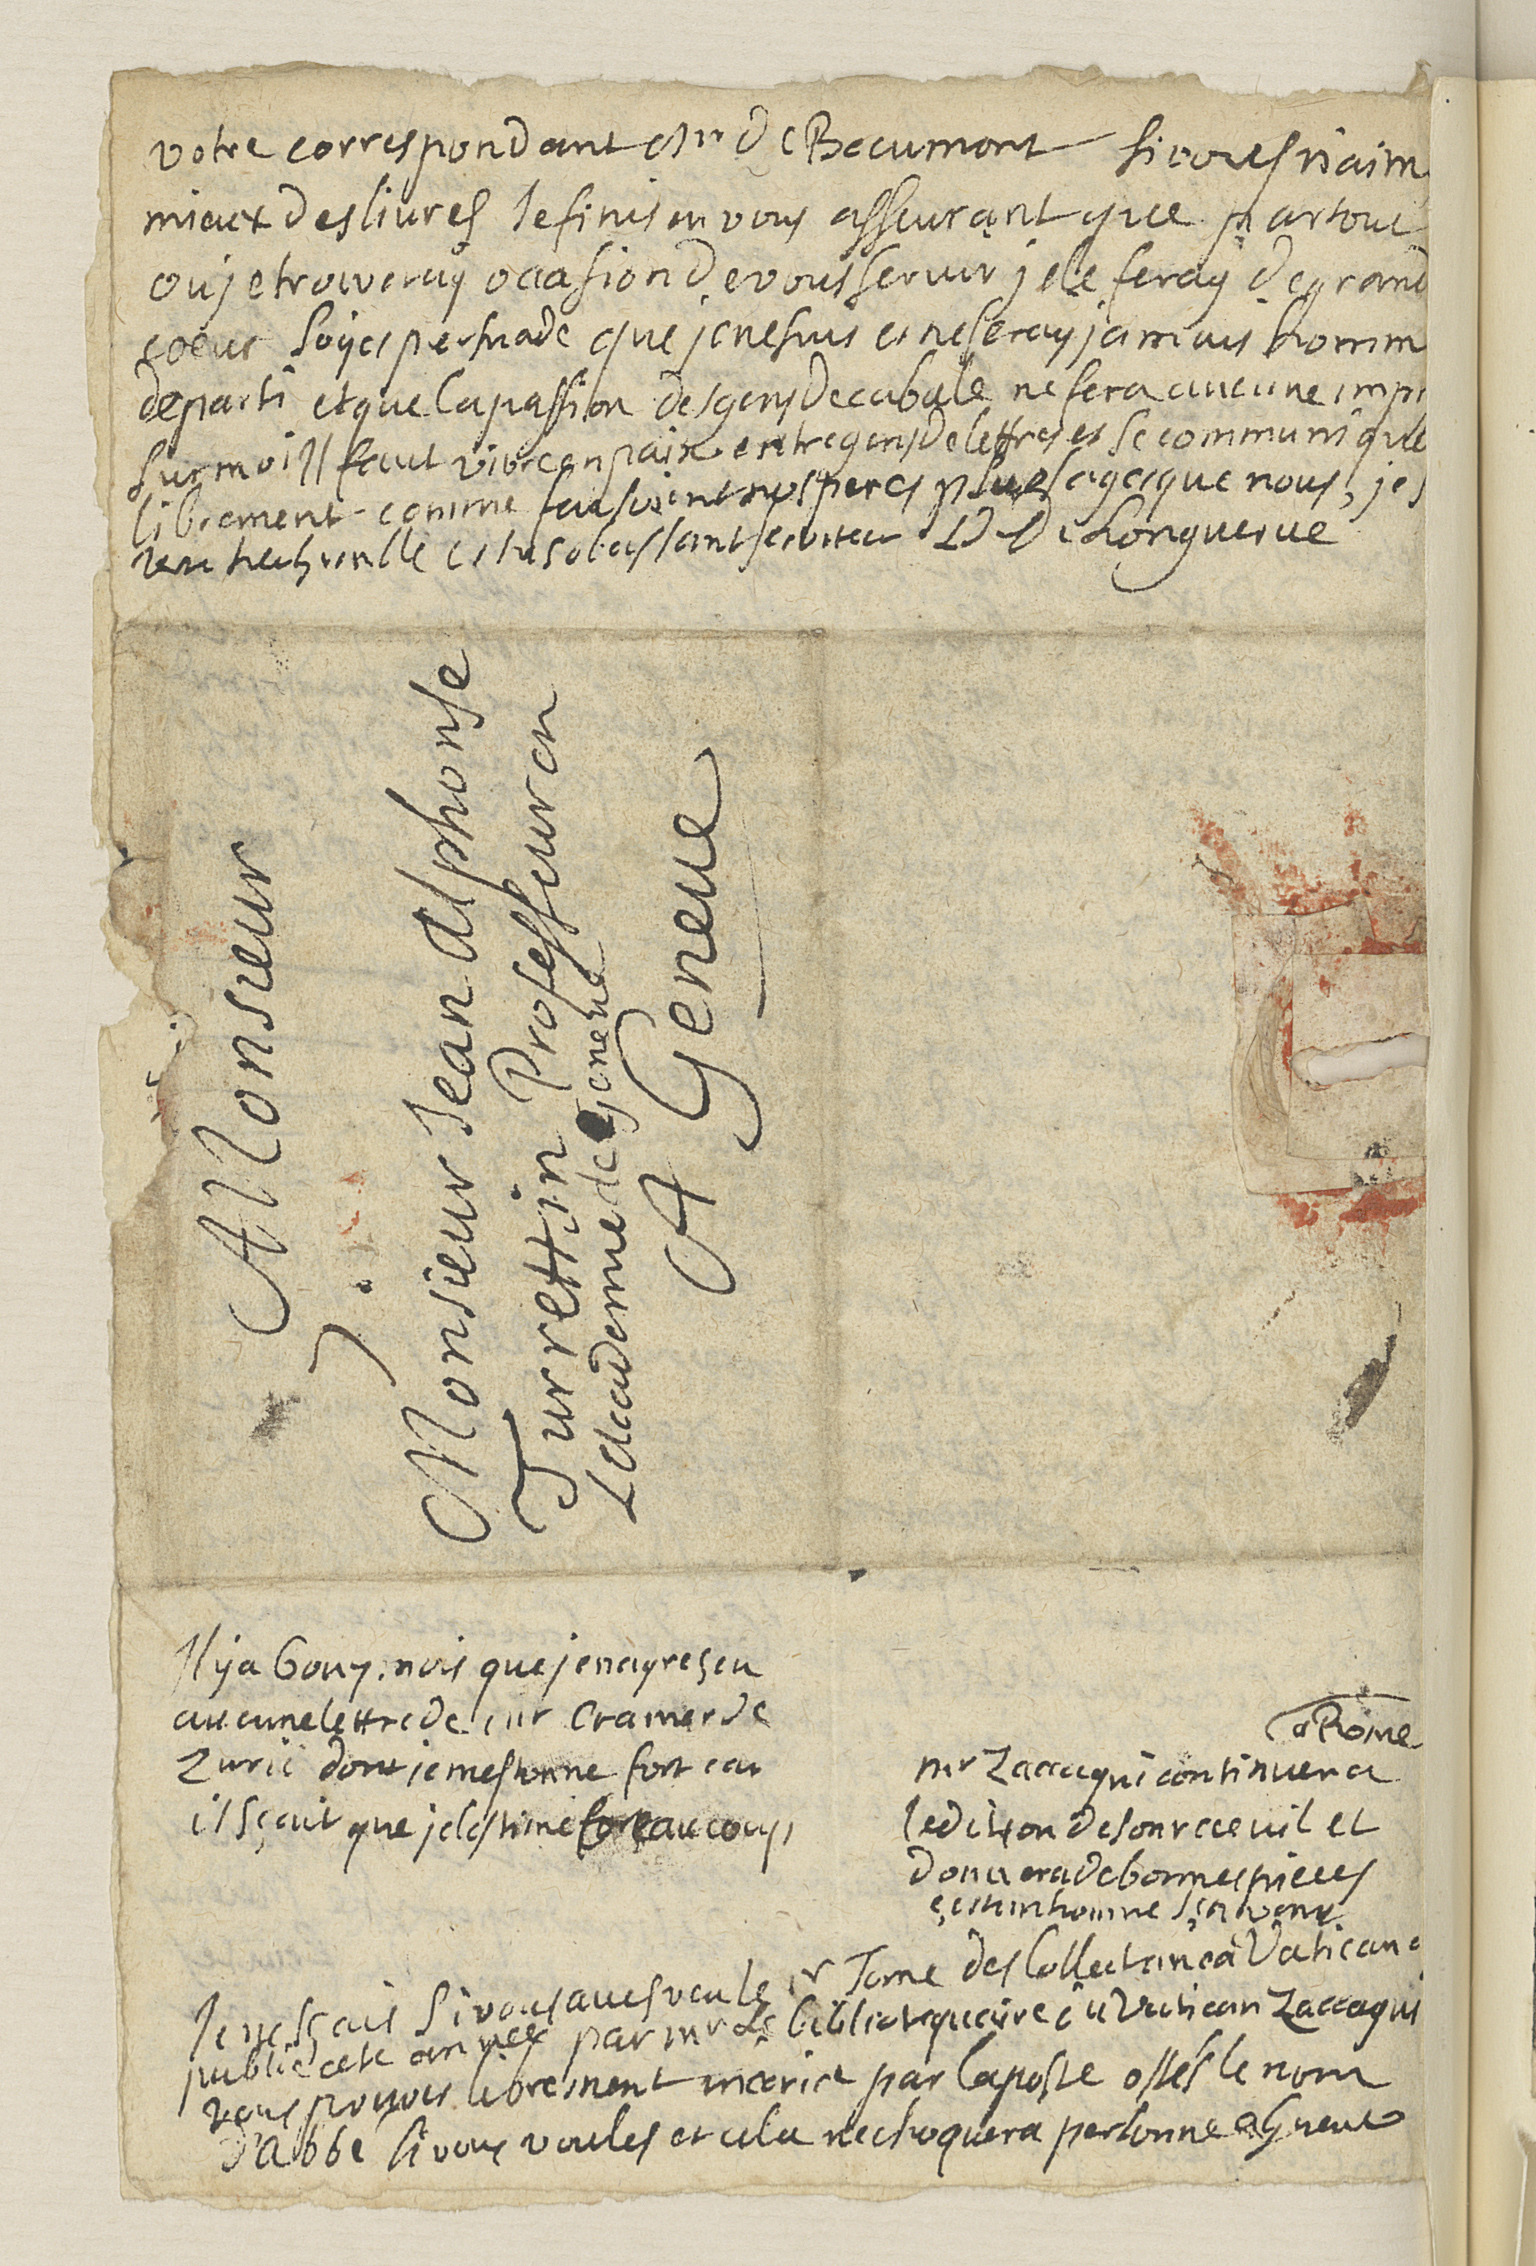 votre correspondant Mr de Beaumont si vous n'aim
mieux des livres Je finis en vous asseurant que partout
ou je trouveray occasion de vous servir je le feray de grand
coeur soyes persuade que je ne suis et ne seray jamais homm
de parti et que la passion des gens de cabale ne fera aucune impr
sur moi Il faut vivre en paix entre gens de lettres et se communique
librement comme faisoient nos peres plus sages que nous, je s
votre tres humble et tres obeissant serviteur D De Longuerue
A Monsieur
Monsieur Jean Alphonse
Turrettin Professeur en
Lacademie de Geneve
A Geneve
Il y a bou mois que je nay receu
aucune lettre de mr Cramer de
Zuric dont je mestonne fort car
il sçait que je lestime beaucoup
a Rome
mr Zaccagni continuera
ledition de son receuil et
donnera de bonnes pieces
c'est un homme sçavant
Je ne sçais si vous aves veu le 1r Tome des Collectanea Vaticana
publié cete année par mr Le bibliotequaire du Vatican Zaccagni
vous pouves librement mecrire par la poste ostés le nom
d'Abbé si vous voules et cela ne choquera personne a Geneve